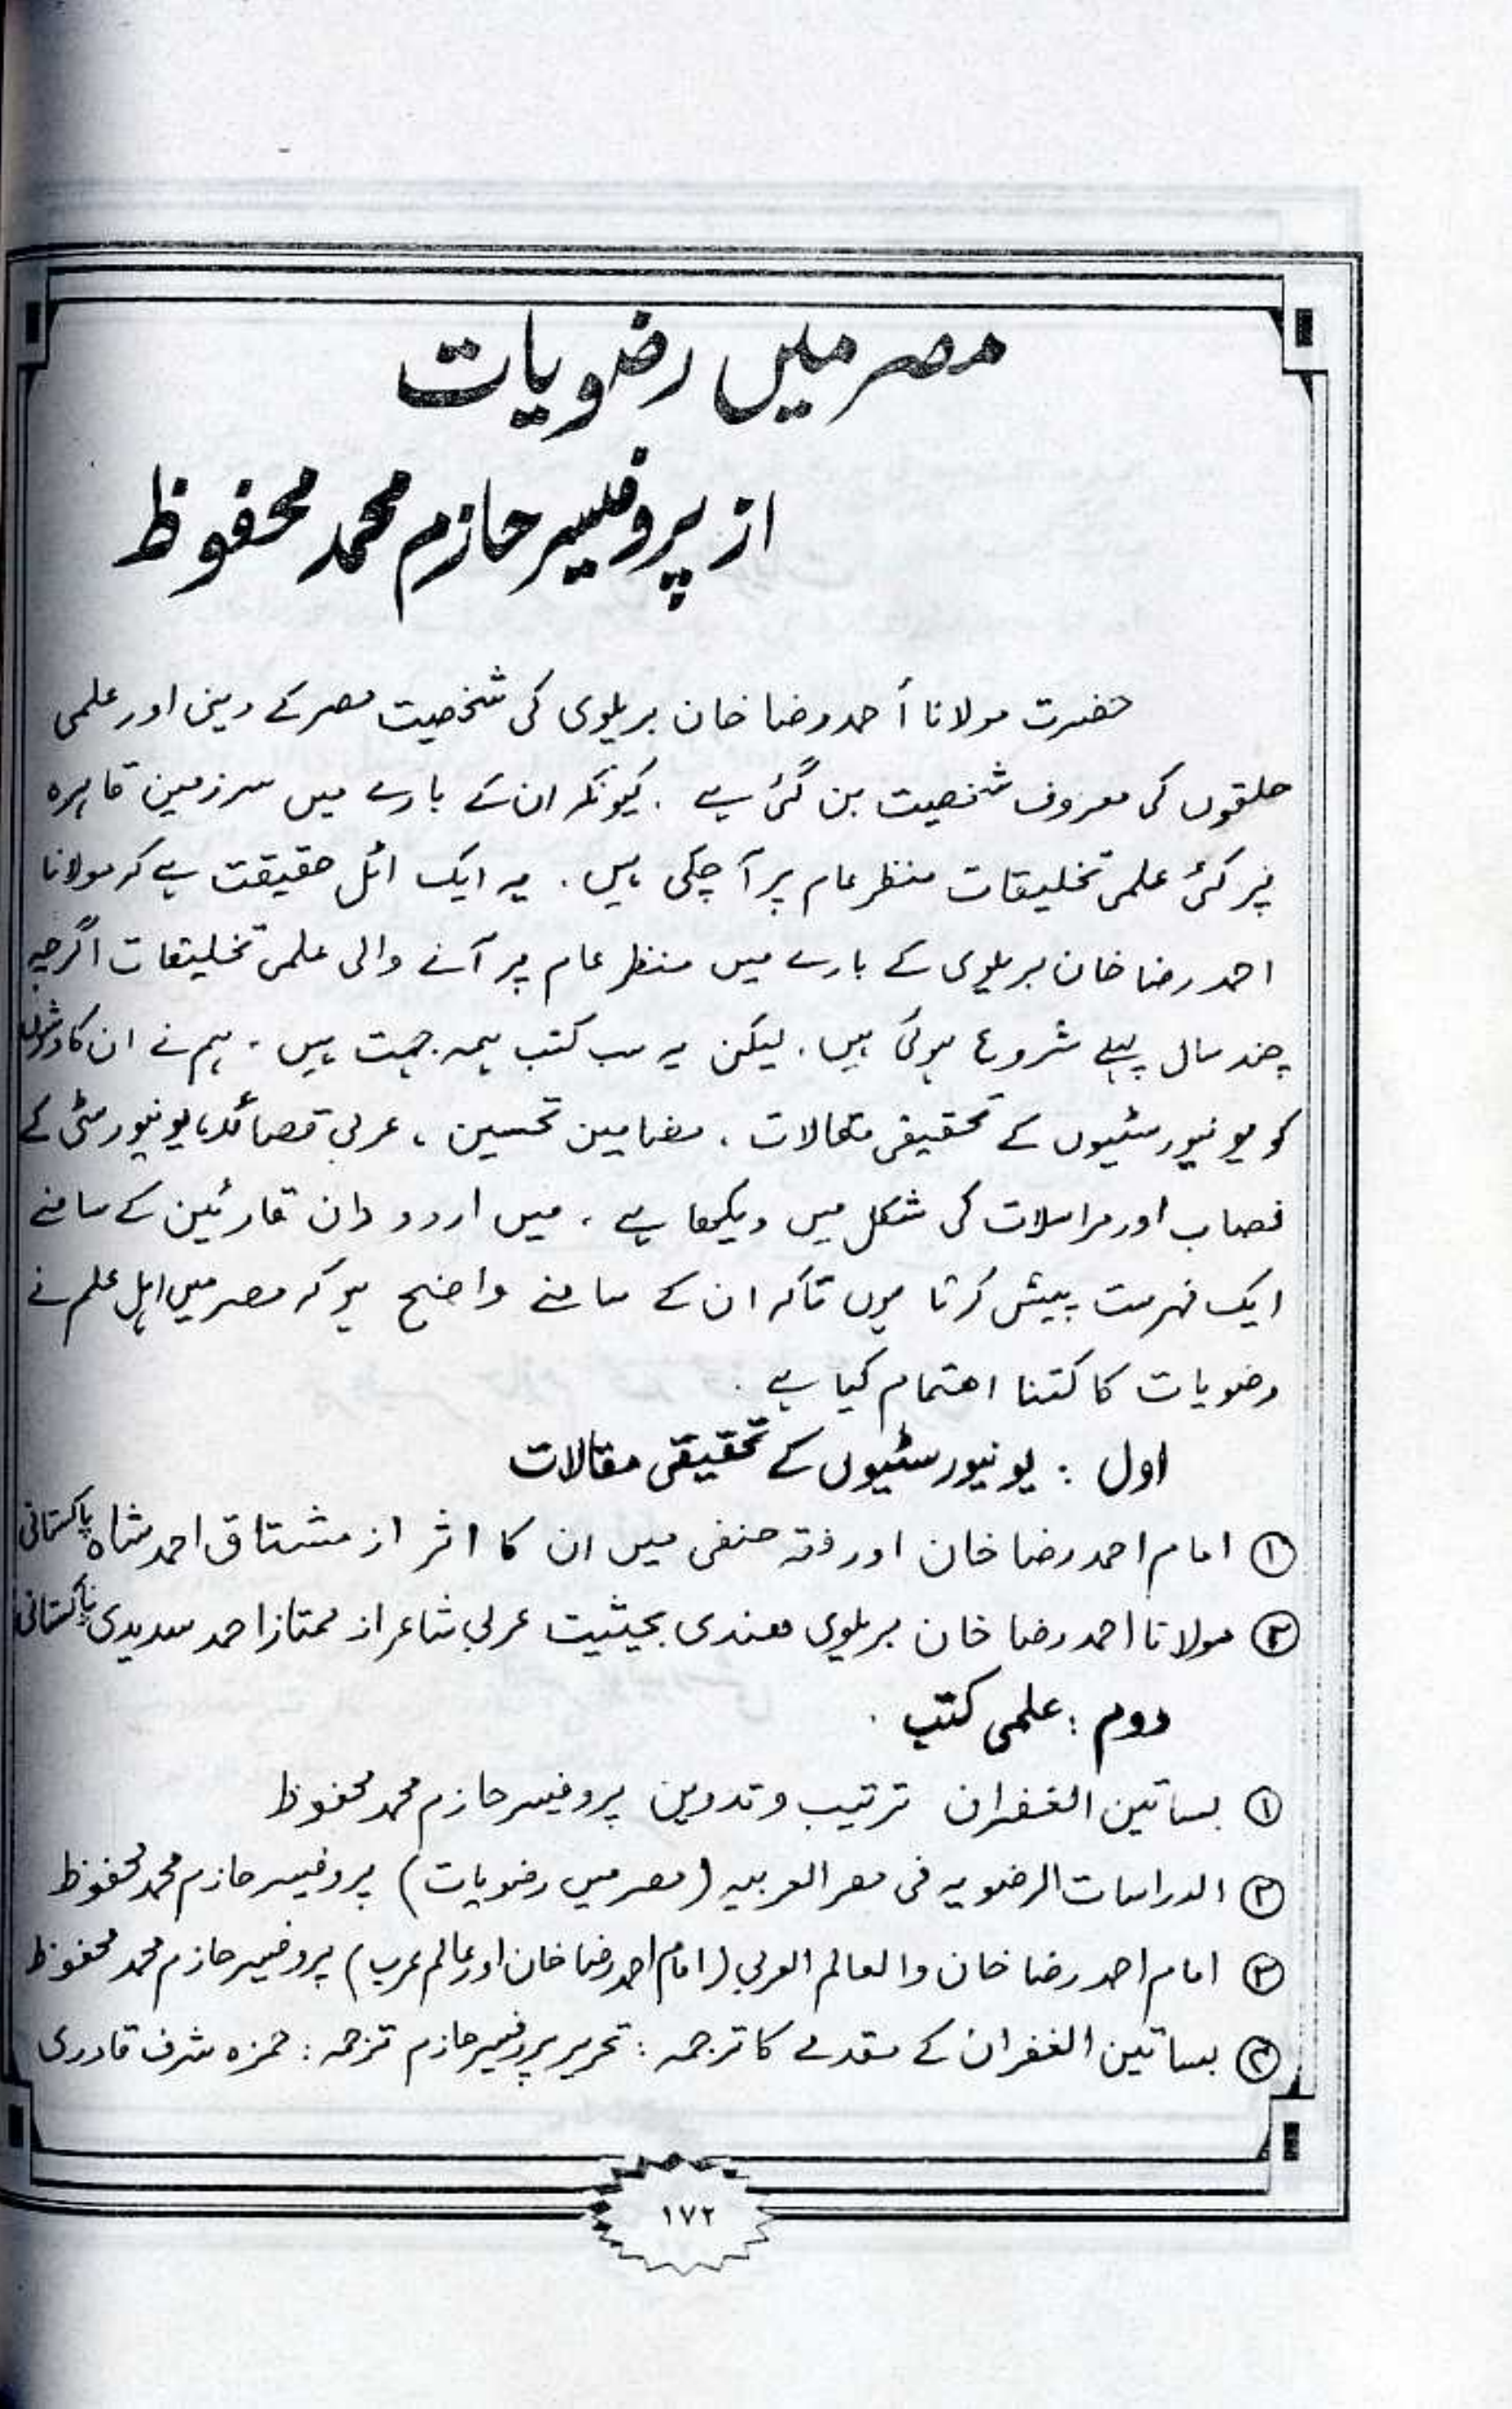 مصر میں رضویات
از پروفیسر حازم محمد محفوظ
حضرت مولانا أحمد رضا خان بریلوی کی شخصیت مصر کے دینی اور علمی
حلقوں کی معروف شخصیت بن گئی ہے . کیونکہ ان کے بارے میں سرزمین قاہرہ
پر کئی علمی تخلیقات منظر عام پر آ چکی ہیں . یہ ایک اٹل حقیقت ہے کہ مولانا
احمد رضا خان بریلوی کے بارے میں منظر عام پر آنے والی علمی تخلیقات اگرچہ
چند سال پہلے شروع ہوئی ہیں . لیکن یہ سب کتب ہمہ جہت ہیں . ہم نے ان کاوشوں
کو یونیورسٹیوں کے تحقیقی مقالات ، مضامین تحسین ، عربی قصائد ، یونیورسٹی کے
نصاب اور مراسلات کی شکل میں دیکھا ہے . میں اردو دان قارئین کے سامنے
ایک فہرست پیش کرتا ہوں تاکہ ان کے سامنے واضح ہو کہ مصر میں اہل علم نے
رضویات کا کتنا اہتمام کیا ہے .
اول : یونیورسٹیوں کے تحقیقی مقالات
① امام احمد رضا خان اور فقہ حنفی میں ان کا اثر از مشتاق احمد شاہ پاکستانی
② مولانا احمد رضا خان بریلوی ھندی بحیثیت عربی شاعر از ممتاز احمد سدیدی پاکستانی
دوم : علمی کتب .
① بساتین الغفران ترتیب و تدوین پروفیسر حازم محمد محفوظ
② الدراسات الرضویہ فی مصر العربیہ (مصر میں رضویات) پروفیسر حازم محمد محفوظ
③ امام احمد رضا خان والعالم العربی (امام احمد رضا خان اور عالم عرب) پروفیسر حازم محمد محفوظ
④ بساتین الغفران کے مقدمے کا ترجمہ : تحریر پروفیسر حازم ترجمہ : حمزہ شرف قادری
۱۷۲